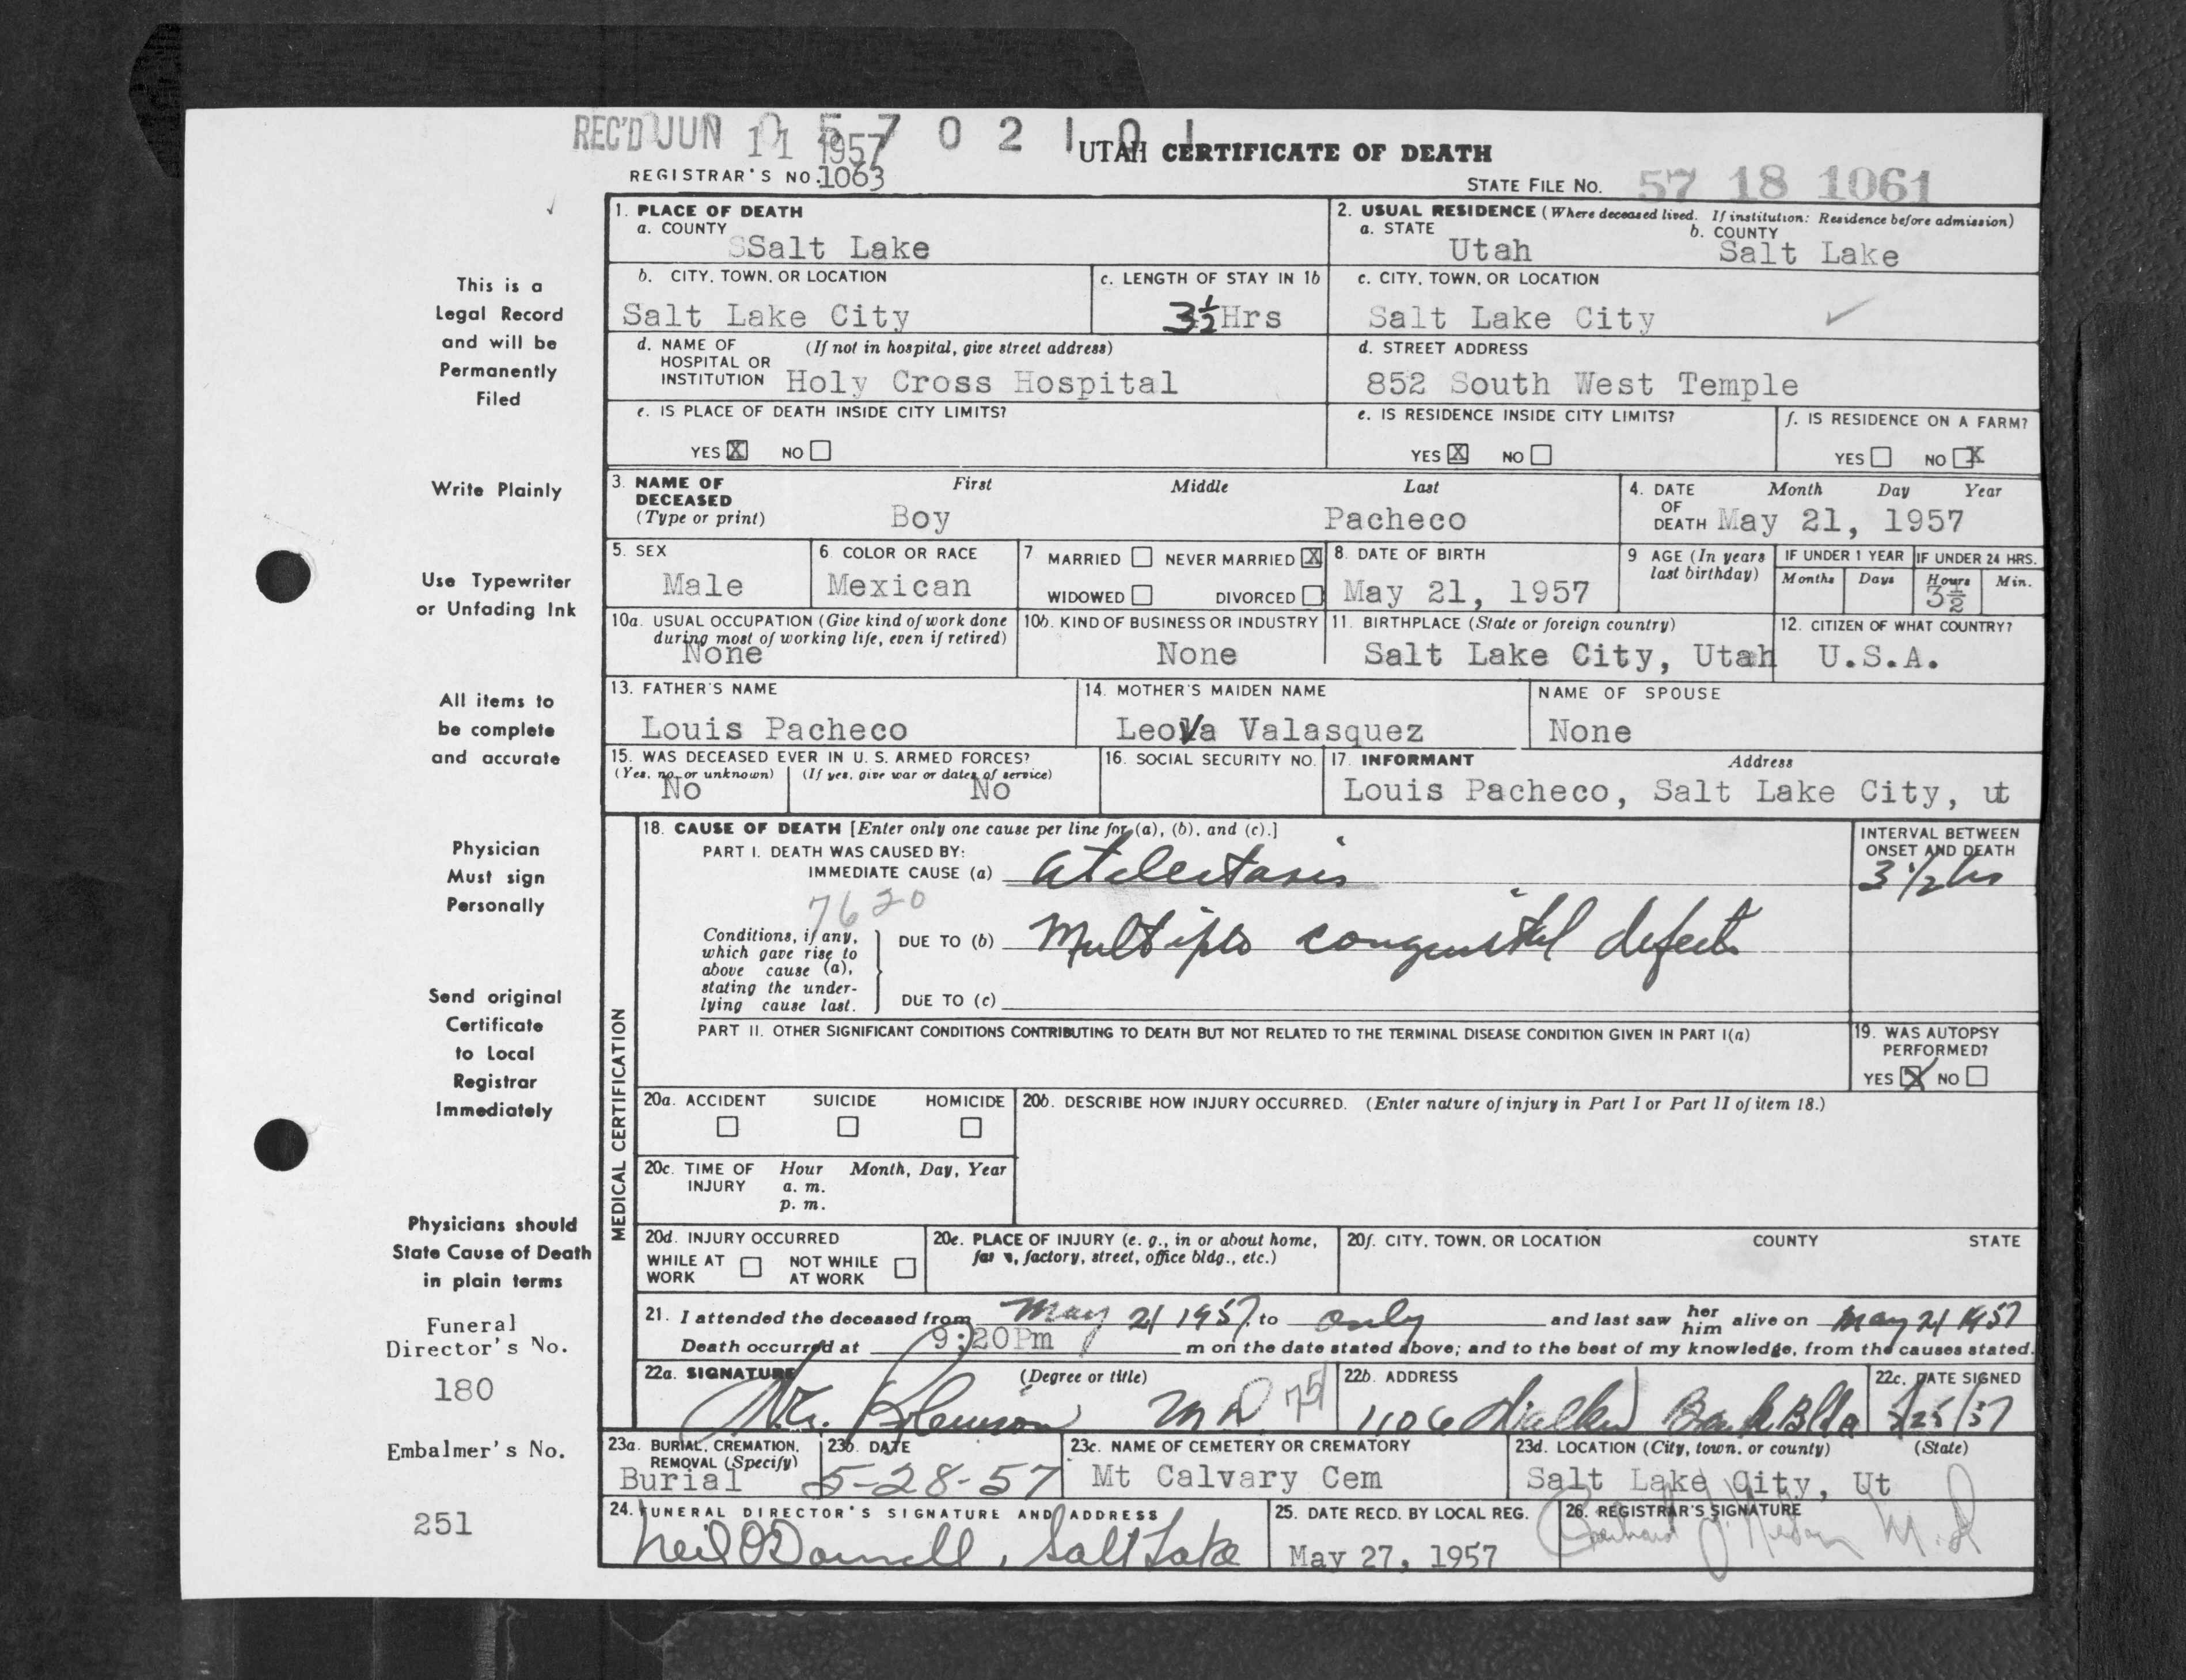 REC'D JUN 11 1957
0 5 7 0 2 1 0 1
UTAH CERTIFICATE OF DEATH
REGISTRAR'S NO. 1063
STATE FILE NO. 57 18 1061
1. PLACE OF DEATH
a. COUNTY
SSalt Lake
2. USUAL RESIDENCE (Where deceased lived. If institution: Residence before admission)
a. STATE
Utah
b. COUNTY
Salt Lake
This is a
Legal Record
and will be
Permanently
Filed
b. CITY, TOWN, OR LOCATION
Salt Lake City
c. LENGTH OF STAY IN 1b
3½ Hrs
c. CITY, TOWN, OR LOCATION
Salt Lake City
d. NAME OF HOSPITAL OR INSTITUTION
(If not in hospital, give street address)
Holy Cross Hospital
d. STREET ADDRESS
852 South West Temple
e. IS PLACE OF DEATH INSIDE CITY LIMITS?
YES X NO
e. IS RESIDENCE INSIDE CITY LIMITS?
YES X NO
f. IS RESIDENCE ON A FARM?
YES NO X
Write Plainly
3. NAME OF DECEASED
(Type or print)
First Middle Last
Boy Pacheco
4. DATE OF DEATH
Month Day Year
May 21, 1957
Use Typewriter
or Unfading Ink
5. SEX
Male
6. COLOR OR RACE
Mexican
7 MARRIED NEVER MARRIED X
WIDOWED DIVORCED
8. DATE OF BIRTH
May 21, 1957
9 AGE (In years last birthday)
IF UNDER 1 YEAR
Months Days
IF UNDER 24 HRS.
Hours Min.
3½
10a. USUAL OCCUPATION (Give kind of work done during most of working life, even if retired)
None
10b. KIND OF BUSINESS OR INDUSTRY
None
11. BIRTHPLACE (State or foreign country)
Salt Lake City, Utah
12. CITIZEN OF WHAT COUNTRY?
U.S.A.
All items to
be complete
and accurate
13. FATHER'S NAME
Louis Pacheco
14. MOTHER'S MAIDEN NAME
Leova Valasquez
NAME OF SPOUSE
None
15. WAS DECEASED EVER IN U. S. ARMED FORCES?
(Yes, no, or unknown) (If yes, give war or dates of service)
No No
16. SOCIAL SECURITY NO.
17. INFORMANT Address
Louis Pacheco, Salt Lake City, ut
Physician
Must sign
Personally
MEDICAL CERTIFICATION
18. CAUSE OF DEATH [Enter only one cause per line for (a), (b), and (c).]
PART I. DEATH WAS CAUSED BY:
IMMEDIATE CAUSE (a) Atelectasis
7620
INTERVAL BETWEEN
ONSET AND DEATH
3 1/2 hrs
Conditions, if any,
which gave rise to
above cause (a),
stating the under-
lying cause last.
DUE TO (b) Multiple congenital defects
DUE TO (c)
Send original
Certificate
to Local
Registrar
Immediately
PART II. OTHER SIGNIFICANT CONDITIONS CONTRIBUTING TO DEATH BUT NOT RELATED TO THE TERMINAL DISEASE CONDITION GIVEN IN PART I(a)
19. WAS AUTOPSY
PERFORMED?
YES X NO
20a. ACCIDENT SUICIDE HOMICIDE
20b. DESCRIBE HOW INJURY OCCURRED. (Enter nature of injury in Part I or Part II of item 18.)
20c. TIME OF INJURY
Hour Month, Day, Year
a. m.
p. m.
Physicians should
State Cause of Death
in plain terms
20d. INJURY OCCURRED
WHILE AT WORK NOT WHILE AT WORK
20e. PLACE OF INJURY (e. g., in or about home, farm, factory, street, office bldg., etc.)
20f. CITY, TOWN, OR LOCATION COUNTY STATE
21. I attended the deceased from May 21 1957 to only and last saw her him alive on May 21 1957
Death occurred at 9:20Pm m on the date stated above; and to the best of my knowledge, from the causes stated.
Funeral
Director's No.
180
22a. SIGNATURE (Degree or title)
M D 75
22b. ADDRESS
1106 Walker Bank Bldg
22c. DATE SIGNED
5/25/57
Embalmer's No.
251
23a. BURIAL, CREMATION, REMOVAL (Specify)
Burial
23b. DATE
5-28-57
23c. NAME OF CEMETERY OR CREMATORY
Mt Calvary Cem
23d. LOCATION (City, town, or county) (State)
Salt Lake City, Ut
24. FUNERAL DIRECTOR'S SIGNATURE AND ADDRESS
Neil O'Donnell, Salt Lake
25. DATE RECD. BY LOCAL REG.
May 27, 1957
26. REGISTRAR'S SIGNATURE
M.D.